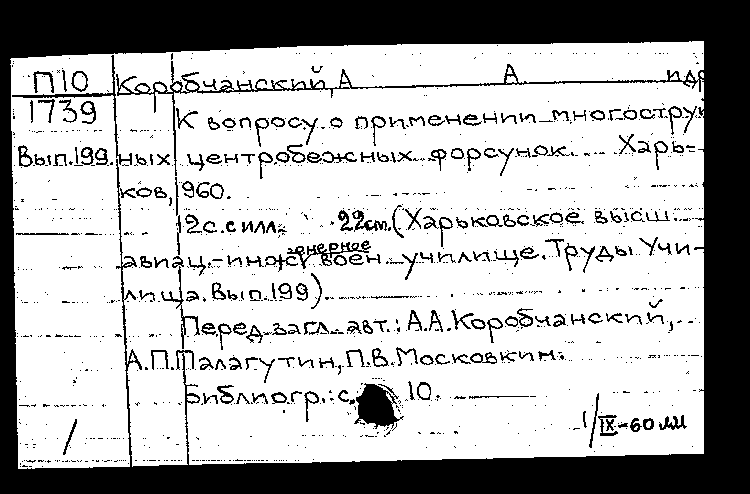 П10 Коробчанский, А А и др
1739
К вопросу о применении многоструй
Вып.199. ных центробежных форсунок. Харь-
ков, 1960.
12с. с илл. 22см. (Харьковское высш.
авиац.-инж. воен. училище. Труды Учи-
женерное
лища. Вып.199).
Перед загл. авт.: А.А.Коробчанский,
А.П.Палагутин, П.В.Московкин.
Библиогр.: с. 10.
1/IX-60